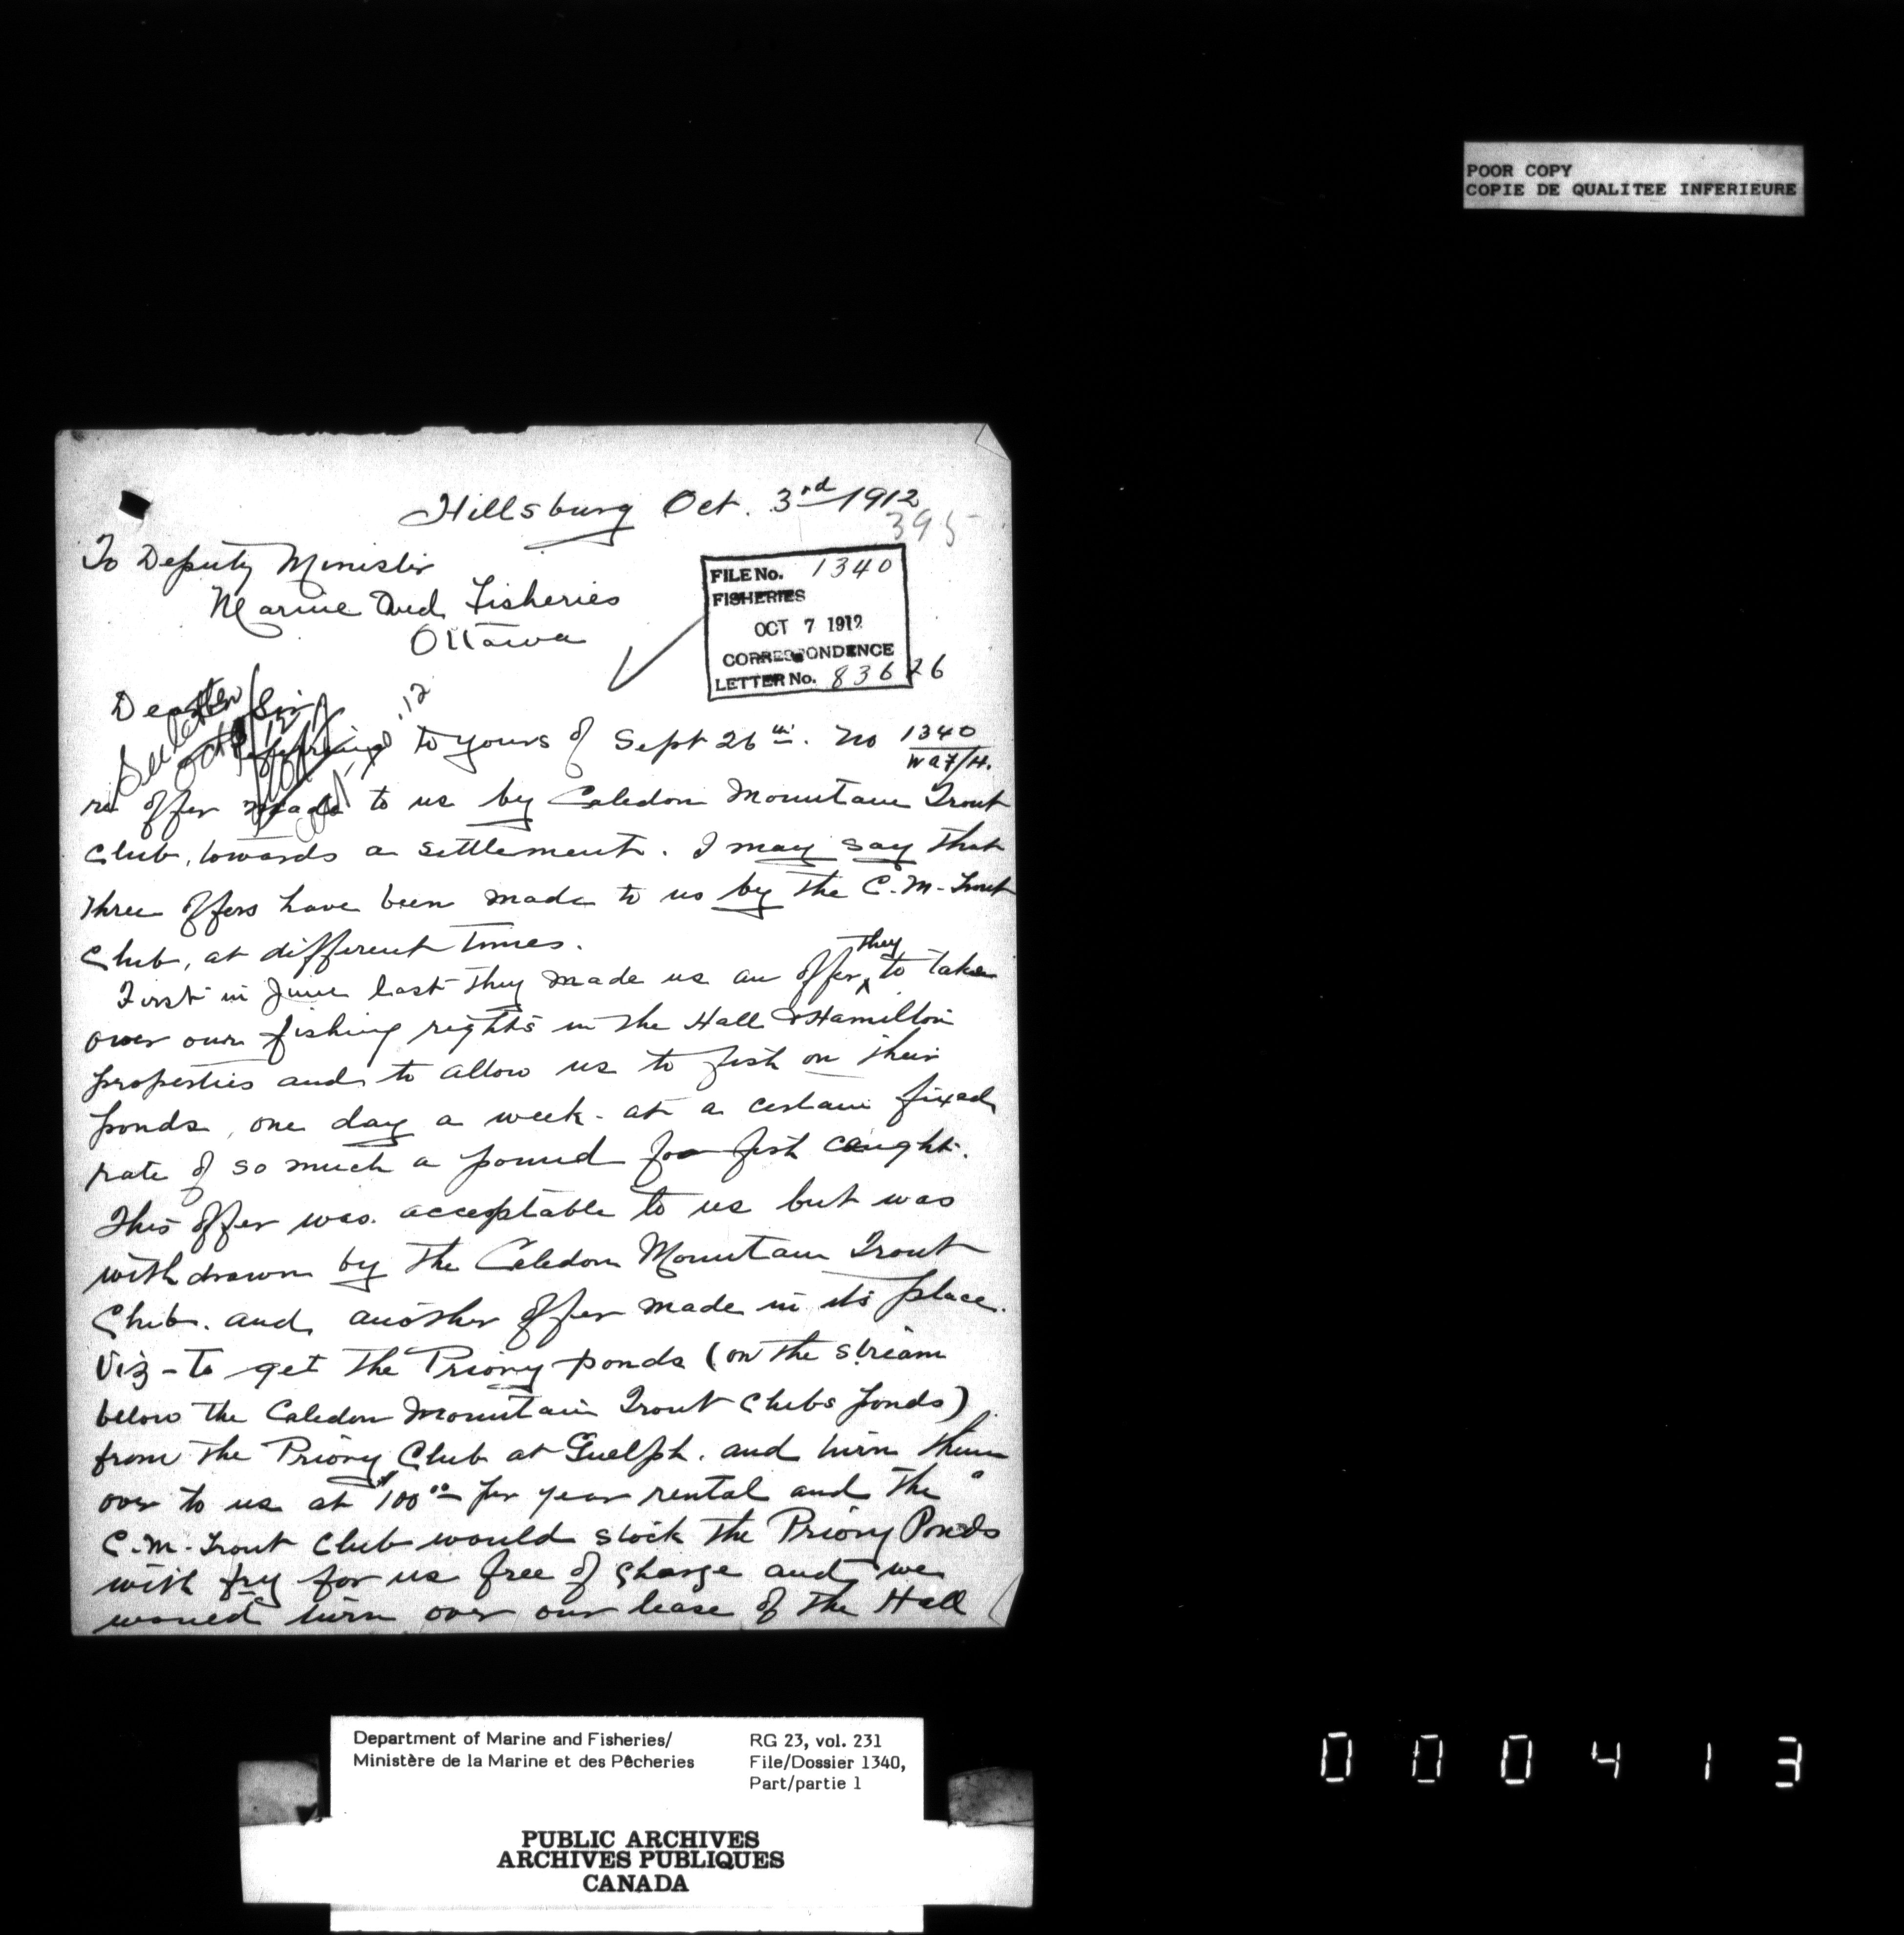 POOR COPY
COPIE DE QUALITEE INFERIEURE
Hillsburg Oct. 3rd 1912
395
To Deputy Minister
Marine And Fisheries
Ottawa
FILE No. 1340
FISHERIES
OCT 7 1912
CORRESPONDENCE
LETTER No. 83626
Dear Sir
Referring to yours of Sept 26th. No 1340
re offer made to us by Caledon Mountain Trout
Club, towards a settlement. I may say that
three offers have been made to us by the C.M. Trout
Club, at different times.
First in June last they made us an offer they to take
over our fishing rights in the Hall & Hamilton
properties and to allow us to fish on their
ponds, one day a week - at a certain fixed
rate of so much a pound for fish caught.
This offer was acceptable to us but was
withdrawn by the Caledon Mountain Trout
Club. and another offer made in its place.
Viz - To get the Priory ponds (on the stream
below the Caledon Mountain Trout Clubs ponds)
from the Priory Club at Guelph. and turn them
over to us at $100.00 per year rental and the
C.M. Trout Club would stock the Priory Ponds
with fry for us free of charge and we
would turn over our lease of the Hall
Department of Marine and Fisheries/
Ministère de la Marine et des Pêcheries
RG 23, vol. 231
File/Dossier 1340,
Part/partie 1
PUBLIC ARCHIVES
ARCHIVES PUBLIQUES
CANADA
000413